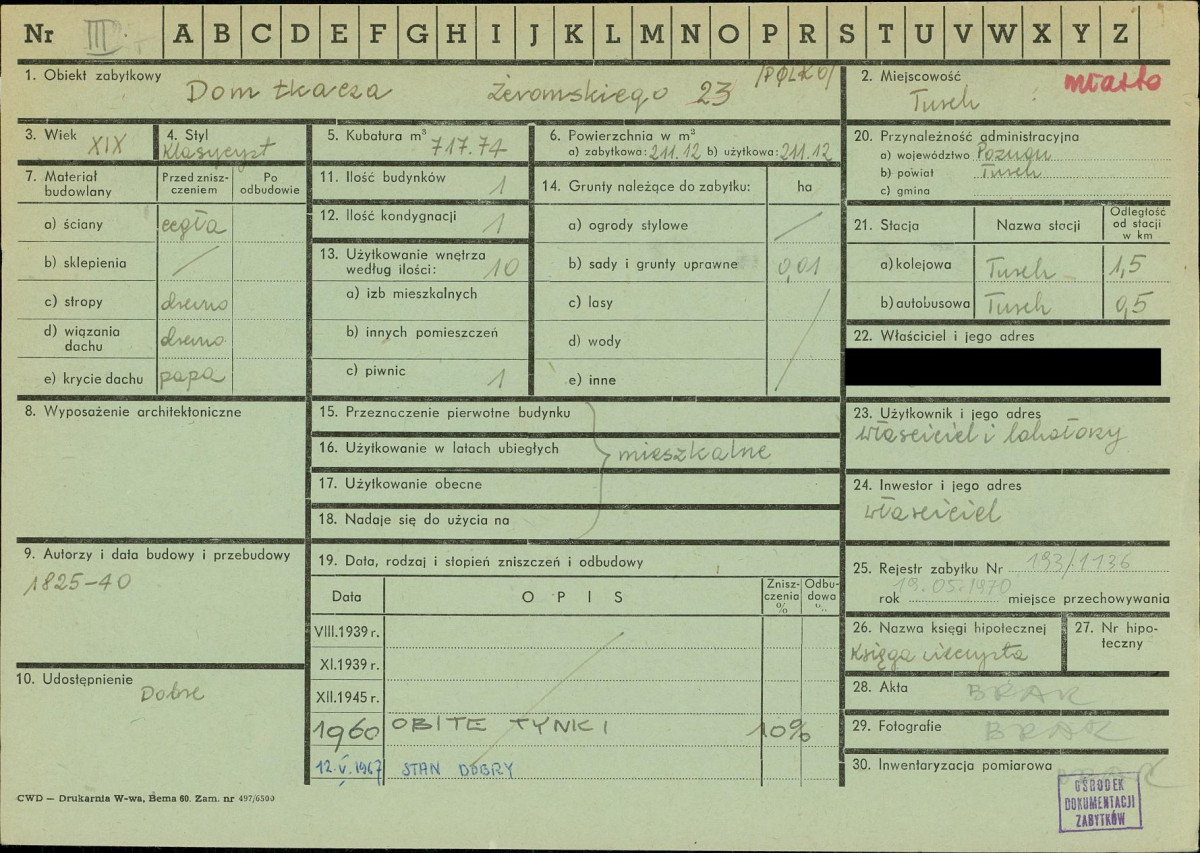 Nr III A B C D E F G H I J K L M N O P R S T U V W X Y Z
1. Obiekt zabytkowy
Dom tkacza Żeromskiego 23 /POLKO/
2. Miejscowość
Turek miasto
3. Wiek XIX
4. Styl
Klasycyzt
5. Kubatura m³ 717.74
6. Powierzchnia w m²
a) zabytkowa: 211.12 b) użytkowa: 211.12
20. Przynależność administracyjna
a) województwo Poznań
b) powiat Turek
c) gmina
7. Materiał budowlany
Przed zniszczeniem
Po odbudowie
a) ściany cegła
b) sklepienia /
c) stropy drewno
d) wiązania dachu drewno
e) krycie dachu papa
11. Ilość budynków 1
12. Ilość kondygnacji 1
13. Użytkowanie wnętrza według ilości: 10
a) izb mieszkalnych
b) innych pomieszczeń
c) piwnic 1
14. Grunty należące do zabytku: ha
a) ogrody stylowe /
b) sady i grunty uprawne 0,01
c) lasy
d) wody
e) inne
21. Stacja
Nazwa stacji
Odległość od stacji w km
a) kolejowa Turek 1,5
b) autobusowa Turek 0,5
22. Właściciel i jego adres
8. Wyposażenie architektoniczne
15. Przeznaczenie pierwotne budynku
16. Użytkowanie w latach ubiegłych
mieszkalne
17. Użytkowanie obecne
18. Nadaje się do użycia na
23. Użytkownik i jego adres
właściciel i lokatorzy
24. Inwestor i jego adres
właściciel
9. Autorzy i data budowy i przebudowy
1825-40
10. Udostępnienie
Dobre
19. Data, rodzaj i stopień zniszczeń i odbudowy
Data
OPIS
Zniszczenia %
Odbudowa %
VIII.1939 r.
XI.1939 r.
XII.1945 r.
1960 OBITE TYNKI 10%
12.V.1967 STAN DOBRY
25. Rejestr zabytku Nr 193/1136
rok 19.05.1970 miejsce przechowywania
26. Nazwa księgi hipotecznej
Księga wieczysta
27. Nr hipoteczny
28. Akta BRAK
29. Fotografie BRAK
30. Inwentaryzacja pomiarowa BRAK
CWD — Drukarnia W-wa, Bema 60. Zam. nr 497/6500
OŚRODEK
DOKUMENTACJI
ZABYTKÓW